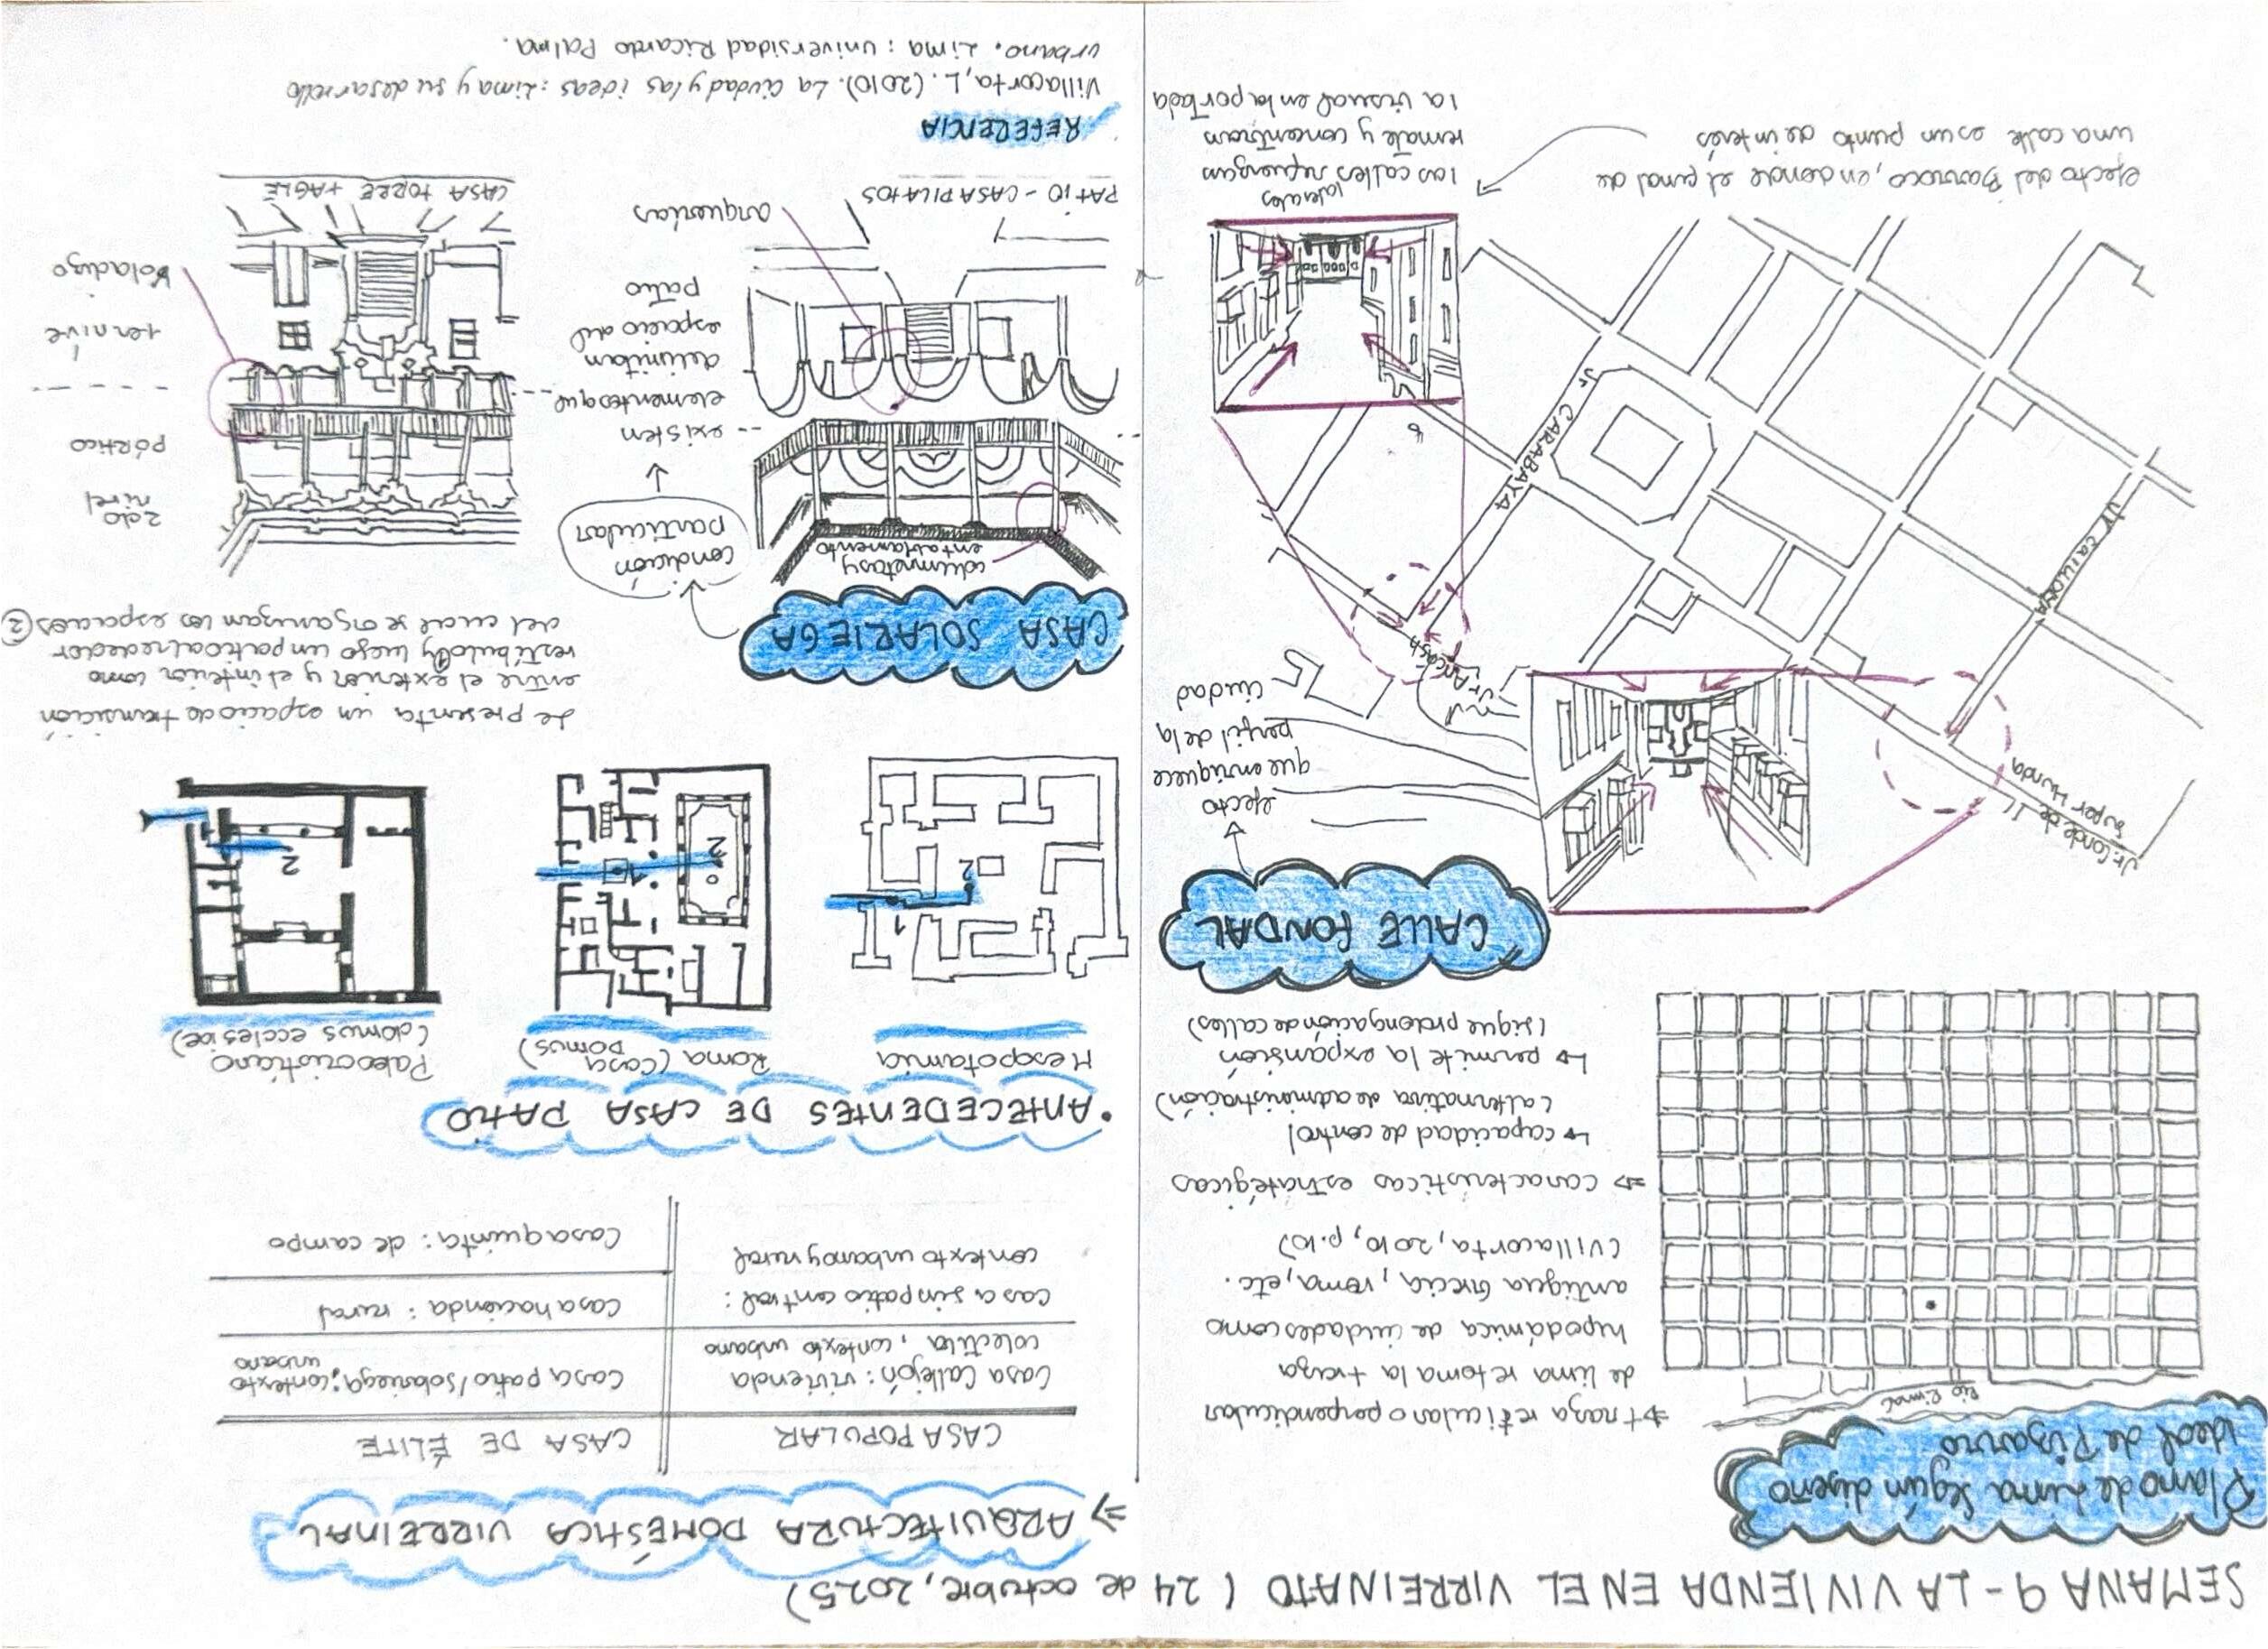 SEMANA 9 - LA VIVIENDA EN EL VIRREINATO (24 de octubre, 2025)
Plano de Lima según diseño
ideal de Pizarro
Río Rímac
→ traza reticular o perpendicular
de lima retoma la traza
hipodámica de ciudades como
antigua Grecia, roma, etc.
(Villacorta, 2010, p.10)
⇒ características estratégicas
↳ capacidad de control
(alternativa de administración)
↳ permite la expansión
(sigue prolongación de calles)
CALLE FONDAL
efecto
que enriquece
perfil de la
ciudad
Jr. Conde de
Super Hunda
Jr. Ancash
Jr CARABAYA
Jr CAILLOMA
efecto del Barroco, en donde el final de
una calle es un punto de interés
las calles
laterales
remate y concentran
la visual en la portada
⇒ ARQUITECTURA DOMÉSTICA VIRREINAL
CASA POPULAR
CASA DE ÉLITE
Casa Callejón: vivienda
colectiva, contexto urbano
Casa sin patio central:
contexto urbano y rural
Casa patio/solariega: contexto
urbano
Casa hacienda: rural
Casa quinta: de campo
• ANTECEDENTES DE CASA PATIO
Mesopotamia
Roma (casa
DOMUS)
Paleocristiano
(domus ecclesiae)
1
2
1
2
2
Se presenta un espacio de transición
entre el exterior y el interior como
vestíbulo ① y luego un patio alrededor
del cual se organizan los espacios ②
CASA SOLARIEGA
condición
particular
existen
elementos que
delimitan
espacio del
patio
columnetas y
entablamento
arquerías
PATIO - CASA PILATOS
2do
nivel
pórtico
1er nive
voladizo
CASA TORRE TAGLE
REFERENCIA
Villacorta, L. (2010). La ciudad y las ideas: Lima y su desarrollo
urbano. Lima: Universidad Ricardo Palma.